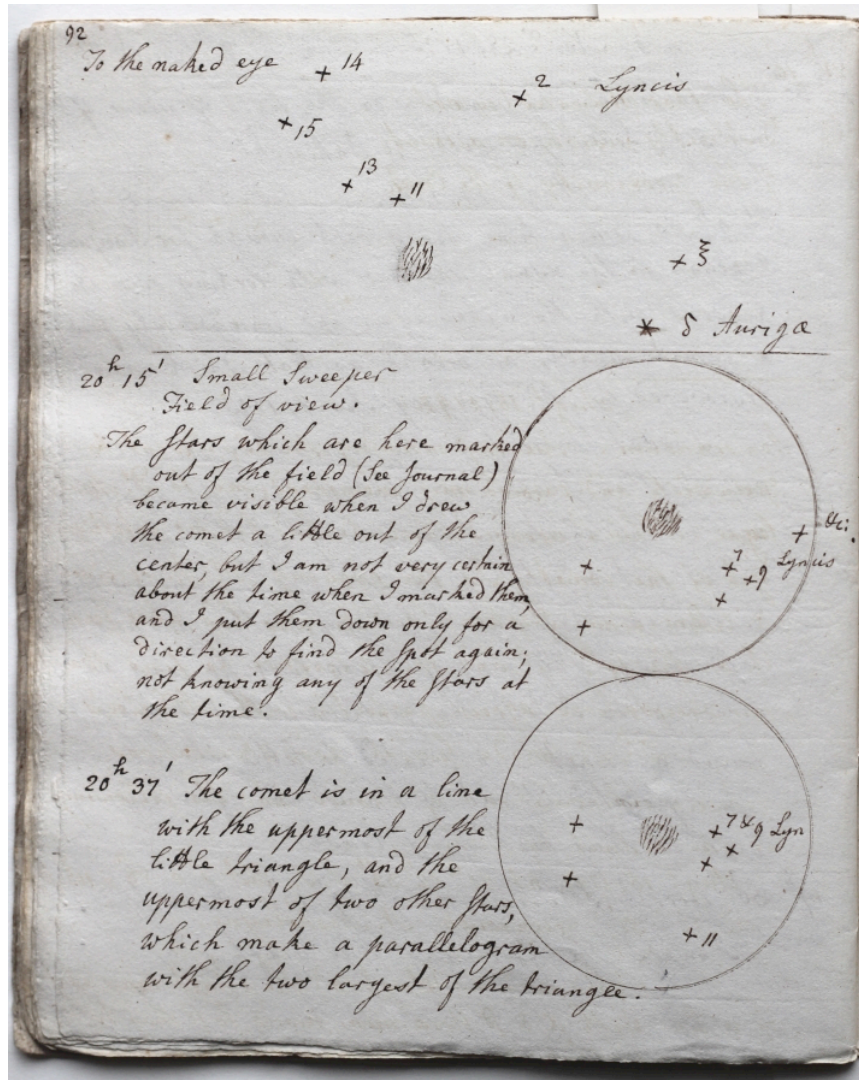 92
To the naked eye + 14
+ 2 Lyncis
+ 15
+ 13
+ 11
+ ξ
* δ Aurigæ
20h 15' Small Sweeper
Field of view.
The Stars which are here marked
out of the field (See Journal)
became visible when I drew
the comet a little out of the
center, but I am not very certain
about the time when I marked them,
and I put them down only for a
direction to find the spot again;
not knowing any of the Stars at
the time.
&c.
7
9 Lyncis
20h 37' The comet is in a line
with the uppermost of the
little triangle, and the
uppermost of two other Stars,
which make a parallelogram
with the two largest of the triangle.
7 & 9 Lyn
11